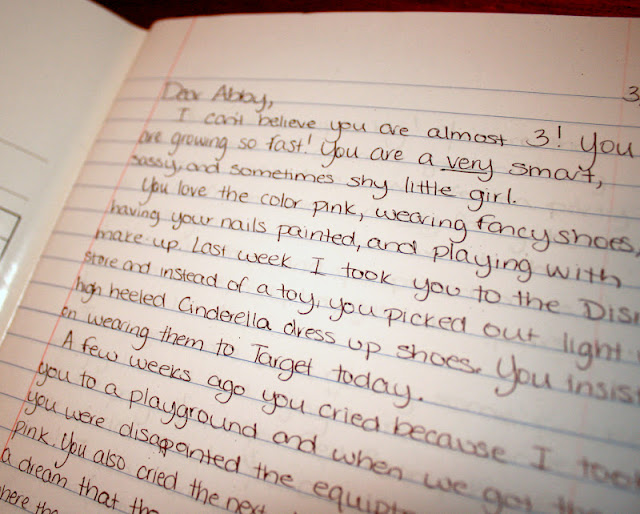 3
Dear Abby,
I can't believe you are almost 3! You
are growing so fast! You are a very smart,
sassy, and sometimes shy little girl.
You love the color pink, wearing fancy shoes,
having your nails painted, and playing with
make-up. Last week I took you to the Disn
store and instead of a toy, you picked out light
high heeled Cinderella dress up shoes. You insis
on wearing them to Target today.
A few weeks ago you cried because I took
you to a playground and when we got the
you were disappointed the equipt
pink. You also cried the next
a dream that the
here the